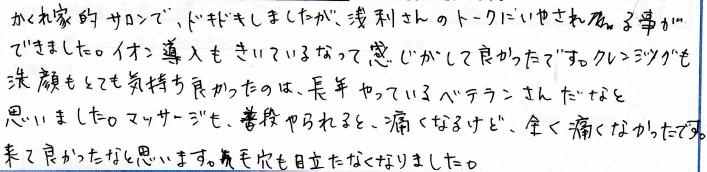 かくれ家的サロンで、ドキドキしましたが、浅利さんのトークにいやされる事が
できました。イオン導入もきいているなって感じがして良かったです。クレンジングも
洗顔もとても気持ち良かったのは、長年やっているベテランさんだなと
思いました。マッサージも、普段やられると、痛くなるけど、全く痛くなかったです。
来て良かったなと思います。毛穴も目立たなくなりました。